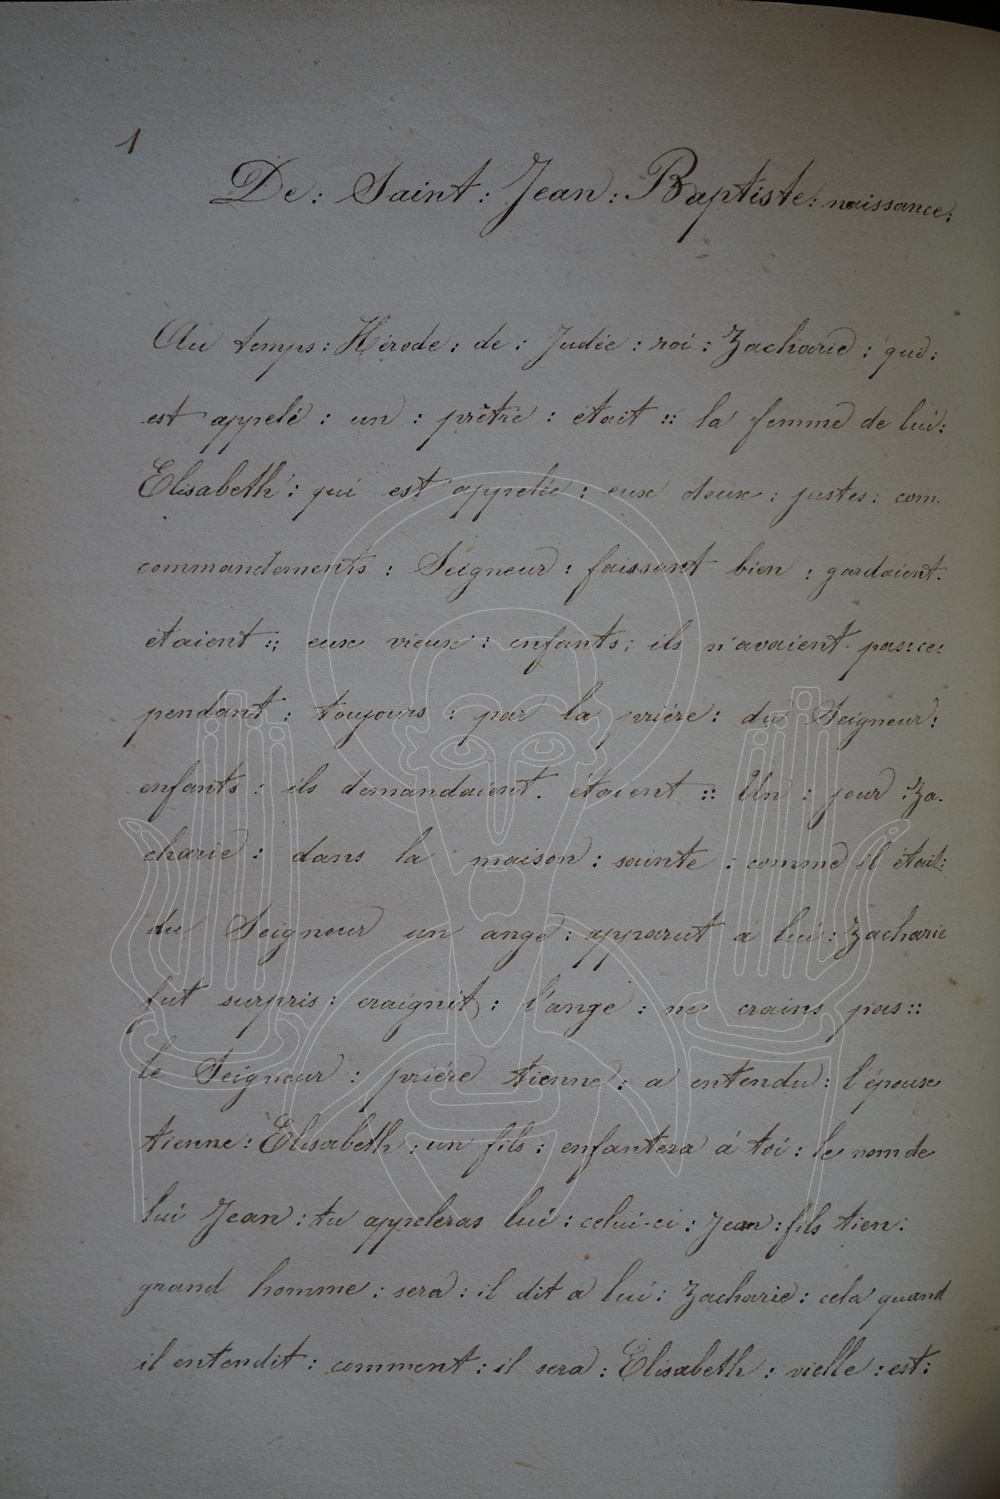 1
De : Saint : Jean : Baptiste : naissance :
Au temps : Hérode : de : Judée : roi : Zacharie : qui :
est appelé : un : prêtre : était :: la femme de lui :
Elisabeth : qui est appelée : eux deux : justes : com.
commandements : Seigneur : faissant bien : gardaient.
étaient :: eux vieux : enfants : ils n'avaient pas : ce :
pendant : toujours : par la prière : du Seigneur :
enfants : ils demandaient. étaient :: Un : jour : Za.
charie : dans la maison : sainte : comme il était :
du Seigneur un ange : apparut à lui : Zacharie
fut surpris : craignit : l'ange : ne crains pas ::
le Seigneur : prière tienne : a entendu : l'épouse
tienne : Elisabeth : un fils : enfantera à toi : le nom de
lui Jean : tu appeleras lui : celui-ci : Jean : fils tien :
grand homme : sera : il dit a lui : Zacharie : cela quand
il entendit : comment : il sera : Elisabeth : vielle : est :